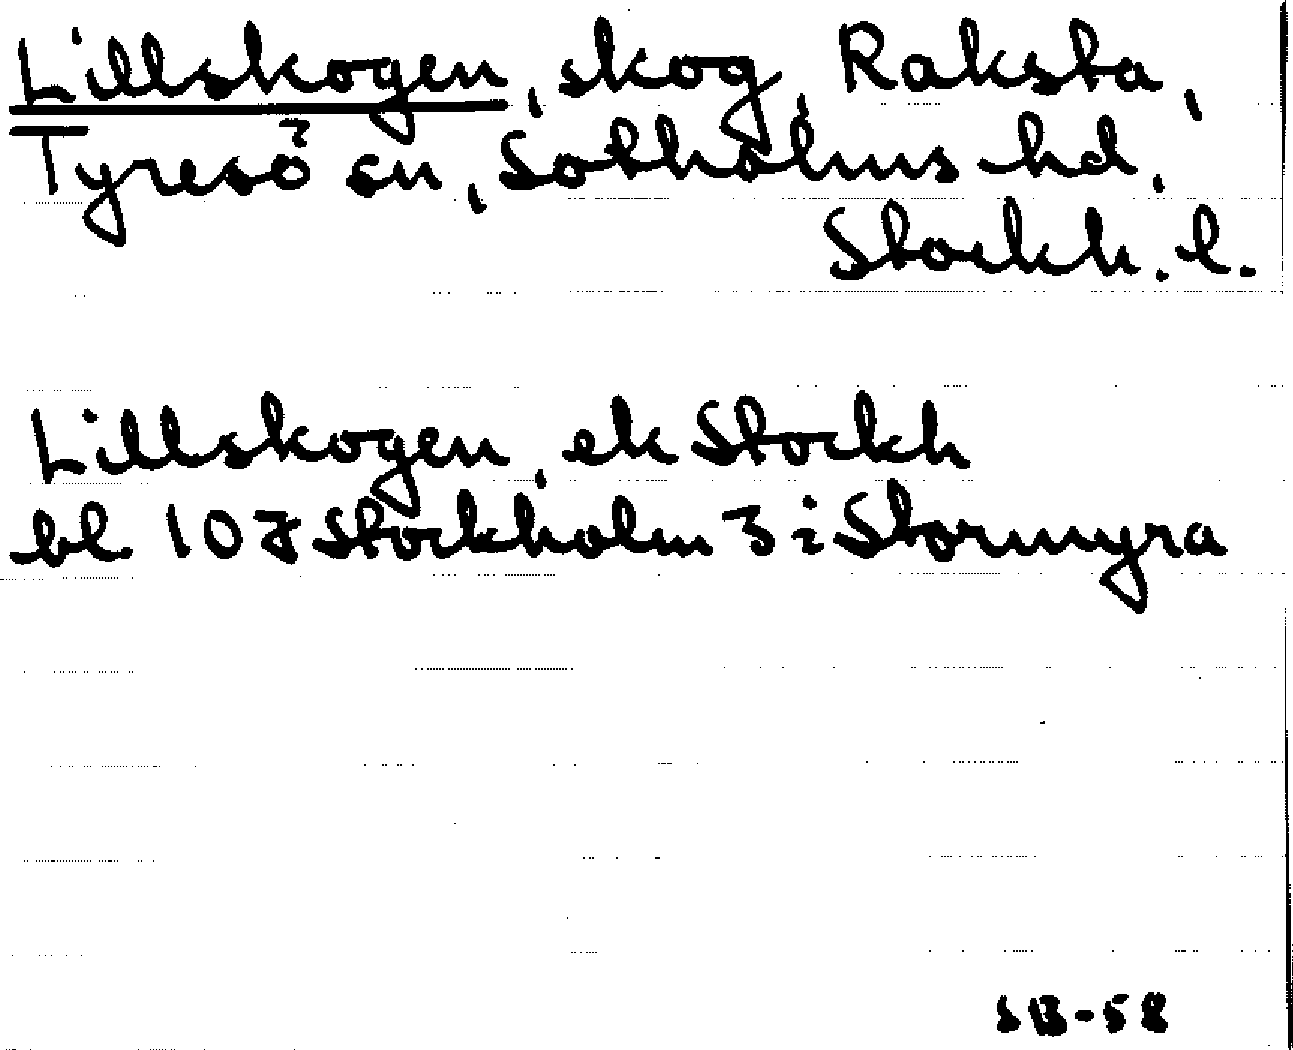 Lillskogen, skog, Raksta,
Tyresö sn, Sotholms hd,
Stockh. l.
Lillskogen, ek Stockh
bl. 107 Stockholm 3 i Stormyra
SB-58